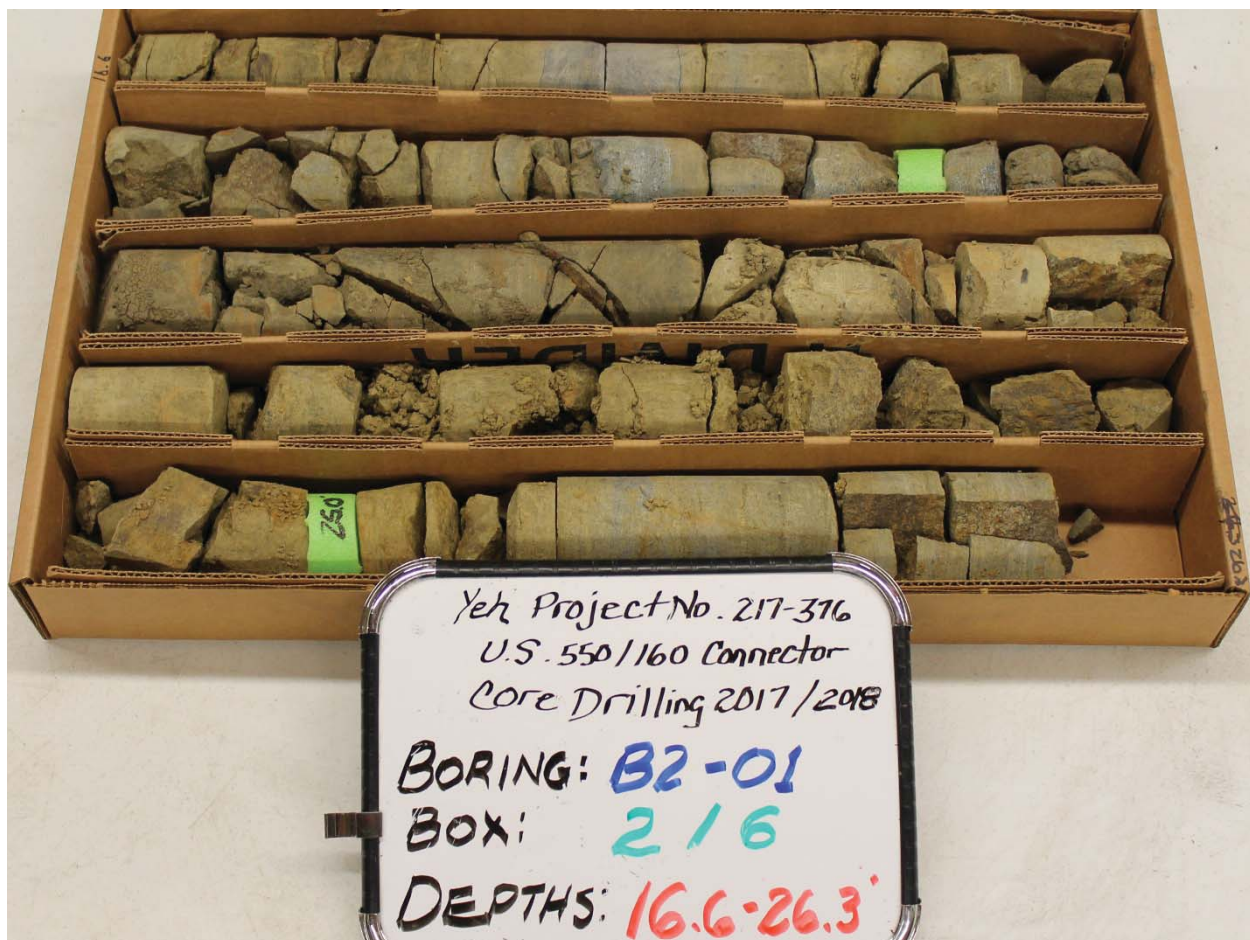 16.6
DIVIDER
25.0
26.3
Yeh Project No. 217-376
U.S. 550/160 Connector
Core Drilling 2017/2018
BORING: B2-01
BOX: 2/6
DEPTHS: 16.6-26.3'